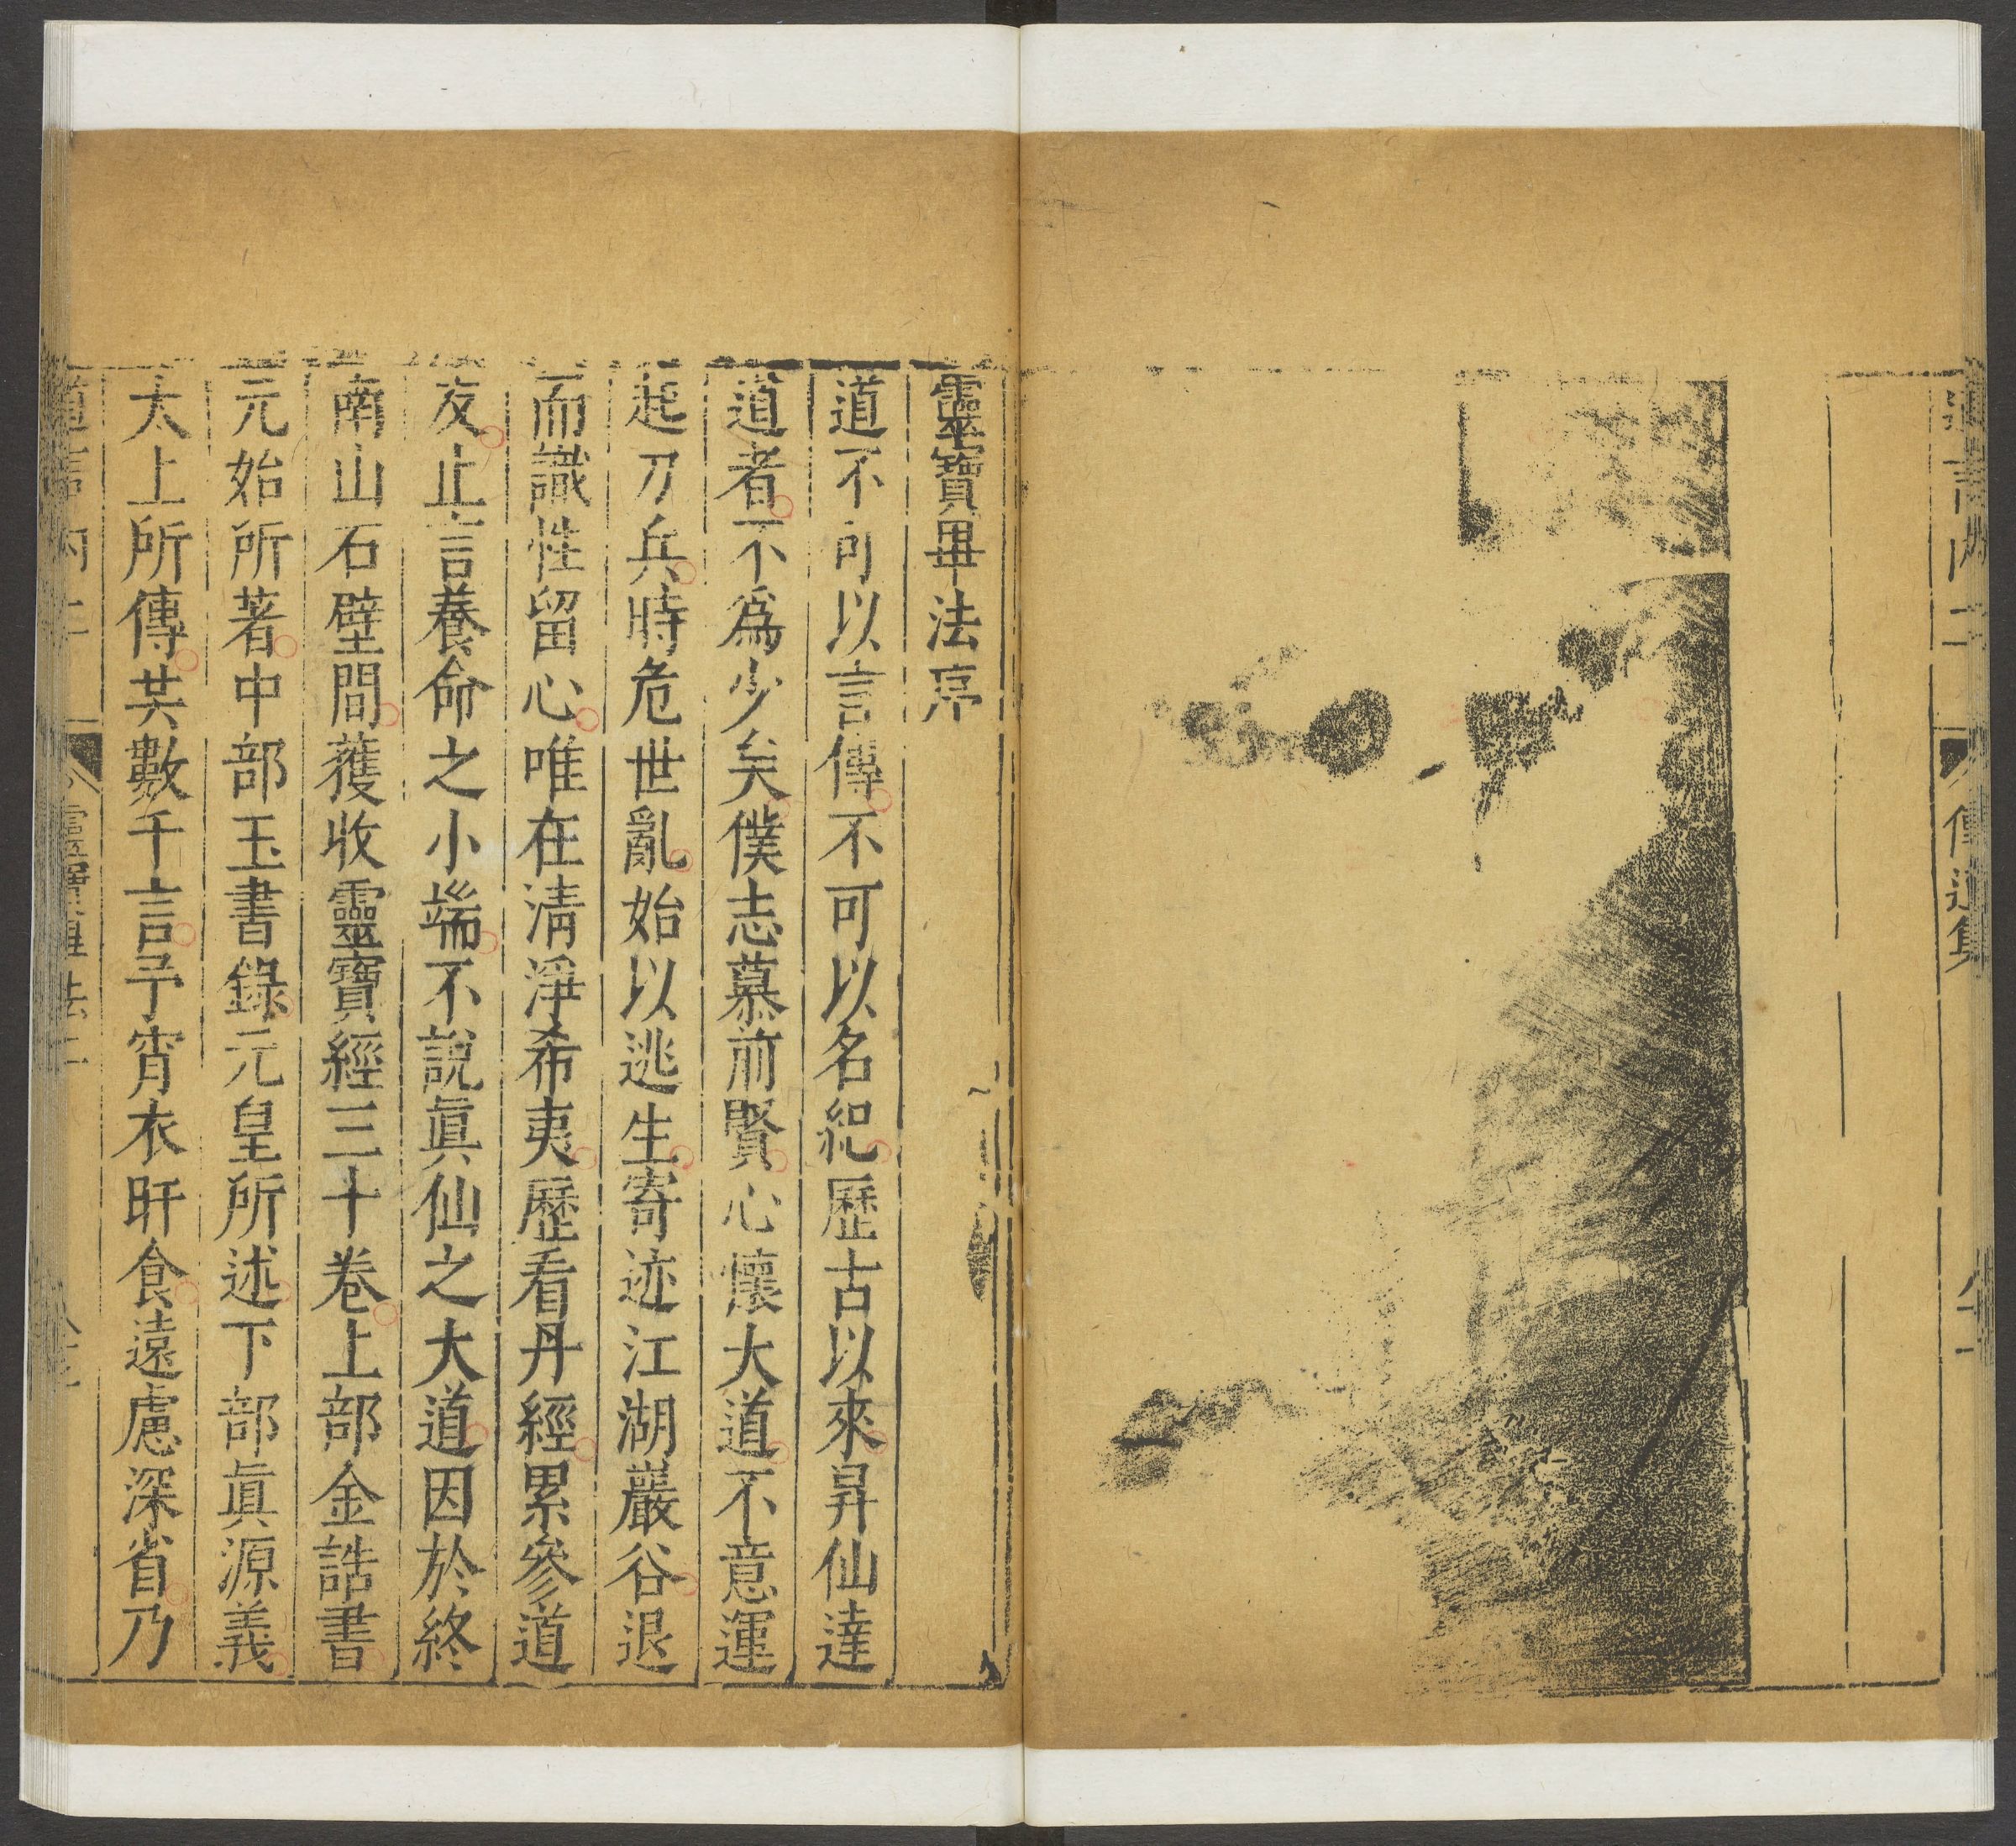 傳道集
靈寶畢法序
道不可以言傳不可以名紀歷古以來昇仙達
道者不爲少矣僕志慕前賢心懷大道不意運
起刀兵時危世亂始以逃生寄迹江湖巖谷退
而識性留心唯在淸淨希夷歷看丹經累參道
友止言養命之小端不說眞仙之大道因於終
南山石壁間獲收靈寶經三十卷上部金誥書
元始所著中部玉書錄元皇所述下部眞源義
太上所傳共數千言予宵衣旰食遠慮深省乃